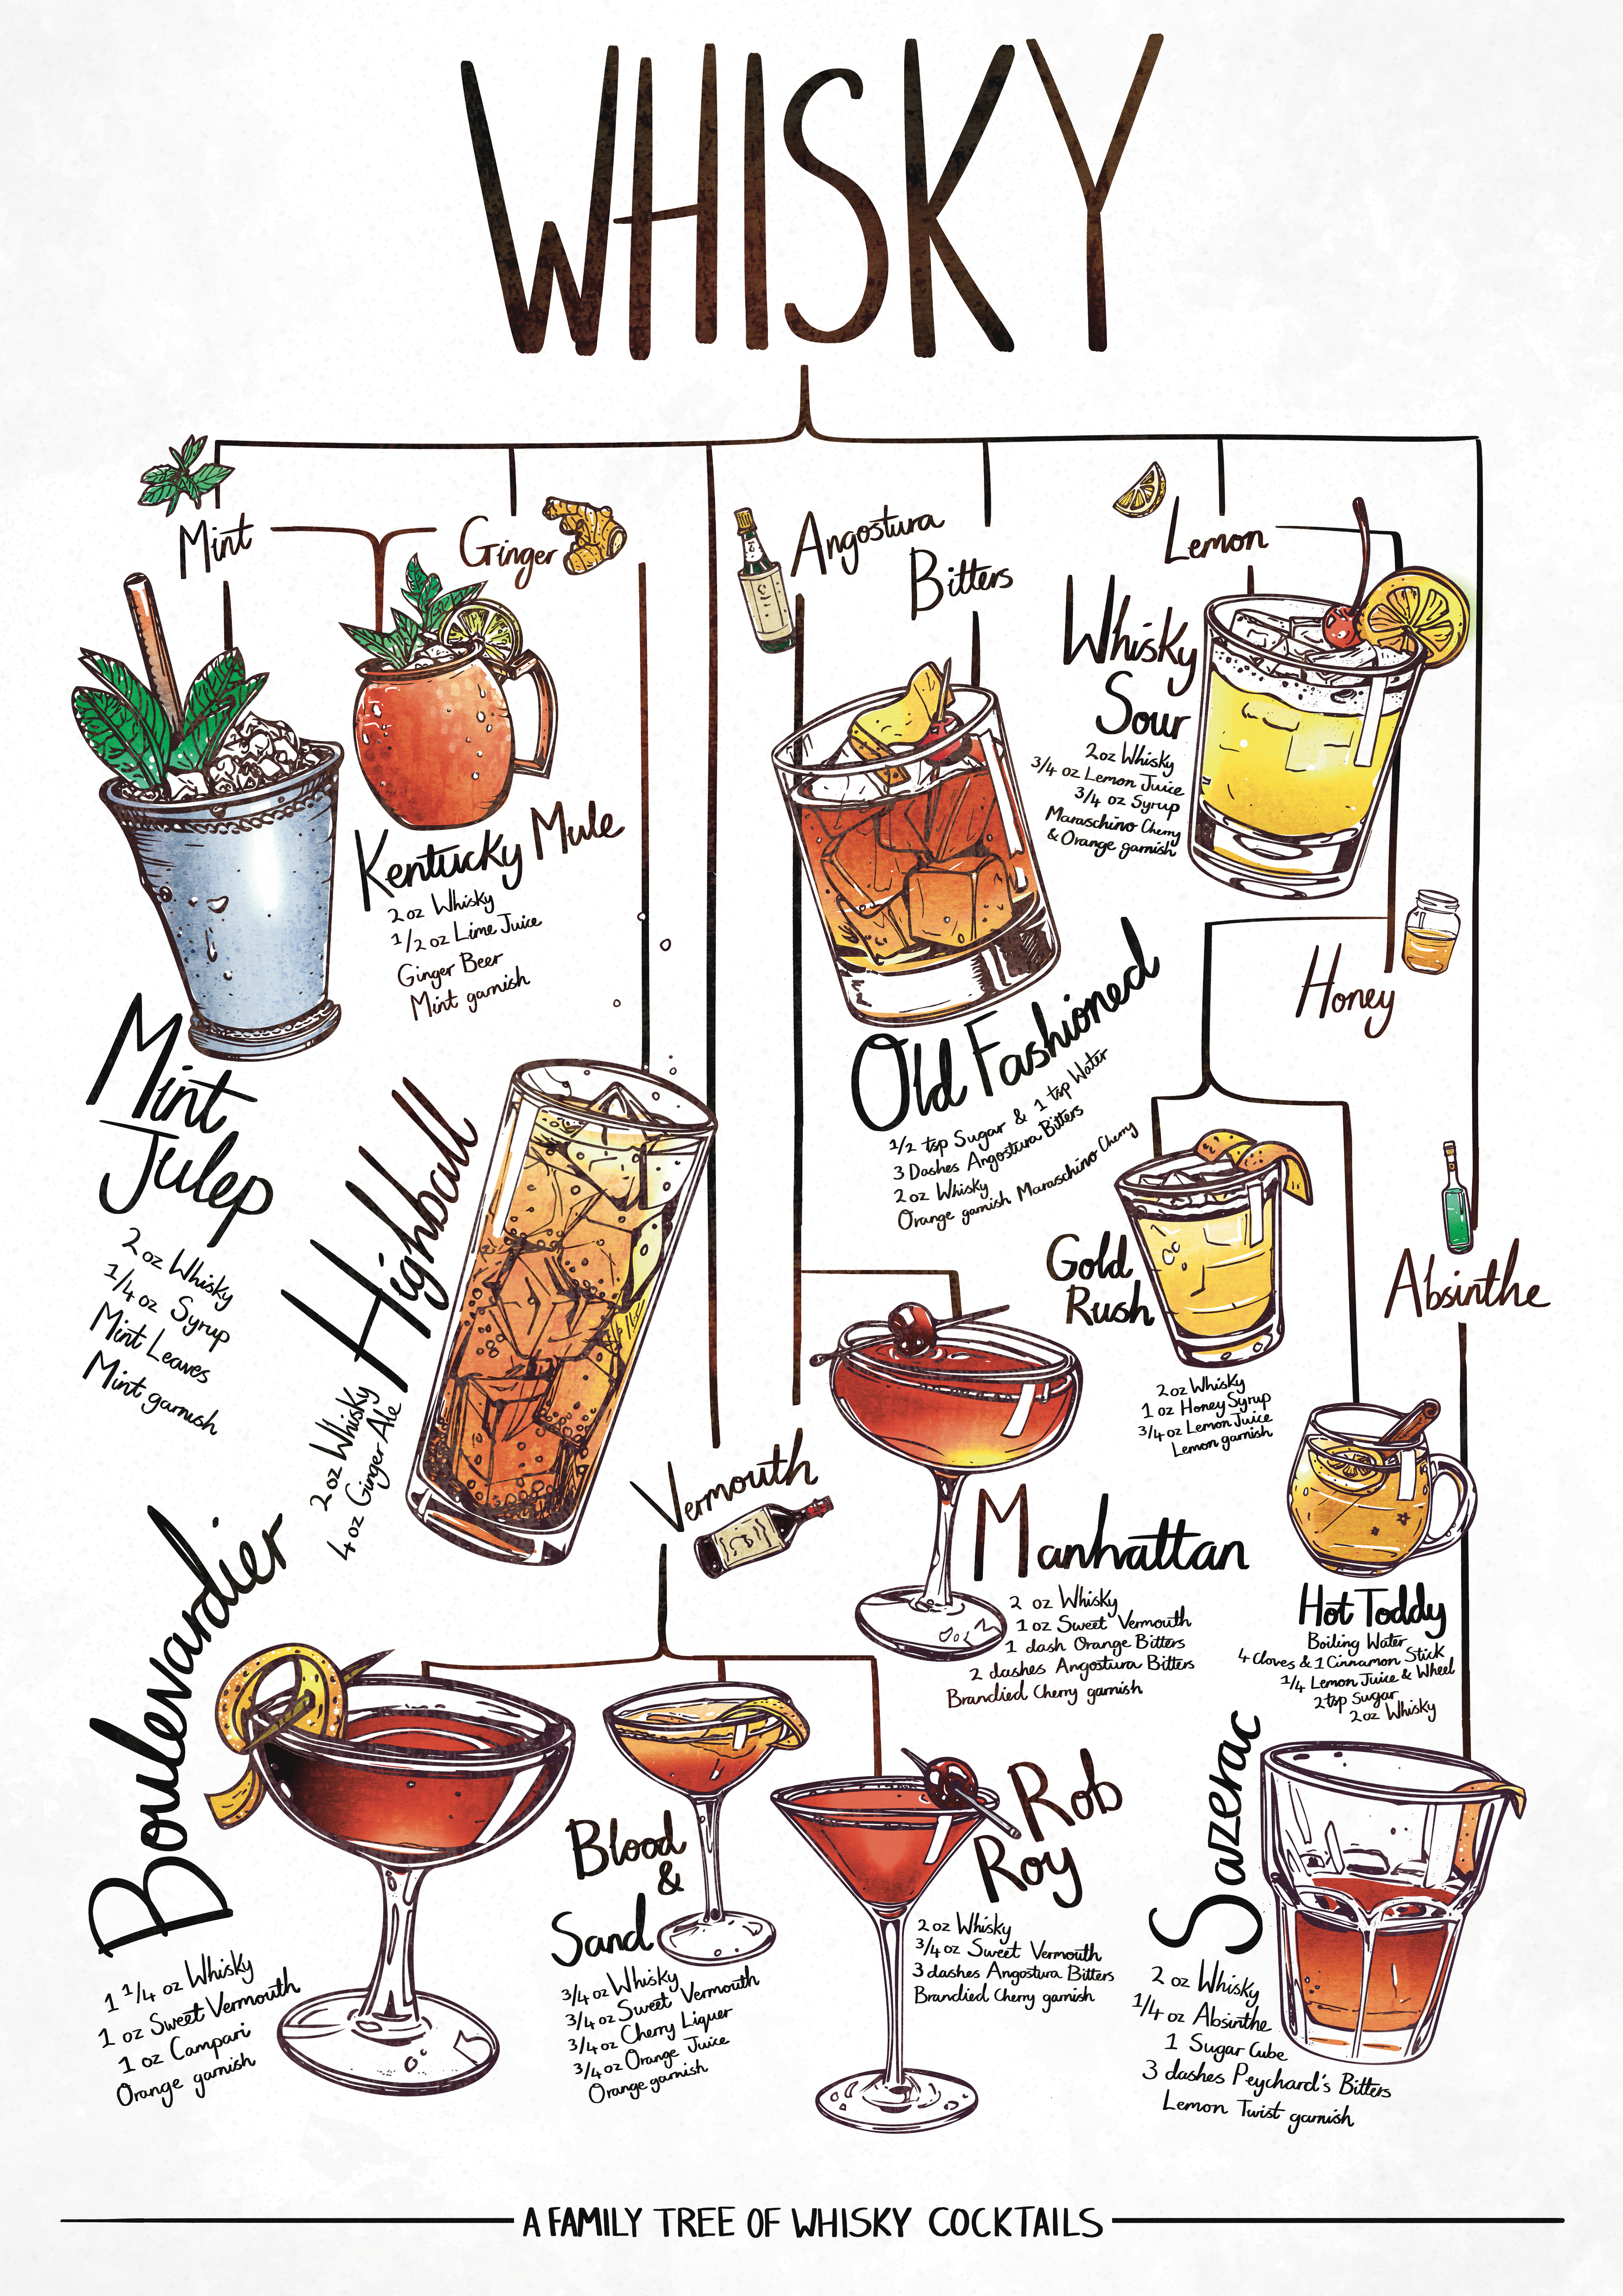 WHISKY
Mint
Ginger
Angostura
Bitters
Lemon
Whisky
Sour
2oz Whisky
3/4 oz Lemon Juice
3/4 oz Syrup
Maraschino Cherry
& Orange garnish
Kentucky Mule
2 oz Whisky
1/2 oz Lime Juice
Ginger Beer
Mint garnish
Honey
Old Fashioned
1/2 tsp Sugar & 1 tsp Water
3 Dashes Angostura Bitters
2 oz Whisky
Orange garnish Maraschino Cherry
Mint
Julep
2 oz Whisky
1/4 oz Syrup
Mint Leaves
Mint garnish
Highball
2 oz Whisky
4 oz Ginger Ale
Gold
Rush
2 oz Whisky
1 oz Honey Syrup
3/4 oz Lemon Juice
Lemon garnish
Absinthe
Vermouth
Manhattan
2 oz Whisky
1 oz Sweet Vermouth
1 dash Orange Bitters
2 dashes Angostura Bitters
Brandied Cherry garnish
Hot Toddy
Boiling Water
4 Cloves & 1 Cinnamon Stick
1/4 Lemon Juice & Wheel
2 tsp Sugar
2oz Whisky
Boulevardier
1 1/4 oz Whisky
1 oz Sweet Vermouth
1 oz Campari
Orange garnish
Blood
&
Sand
3/4 oz Whisky
3/4 oz Sweet Vermouth
3/4 oz Cherry Liquer
3/4 oz Orange Juice
Orange garnish
Rob
Roy
2 oz Whisky
3/4 oz Sweet Vermouth
3 dashes Angostura Bitters
Brandied Cherry garnish
Sazerac
2 oz Whisky
1/4 oz Absinthe
1 Sugar Cube
3 dashes Peychard's Bitters
Lemon Twist garnish
A FAMILY TREE OF WHISKY COCKTAILS